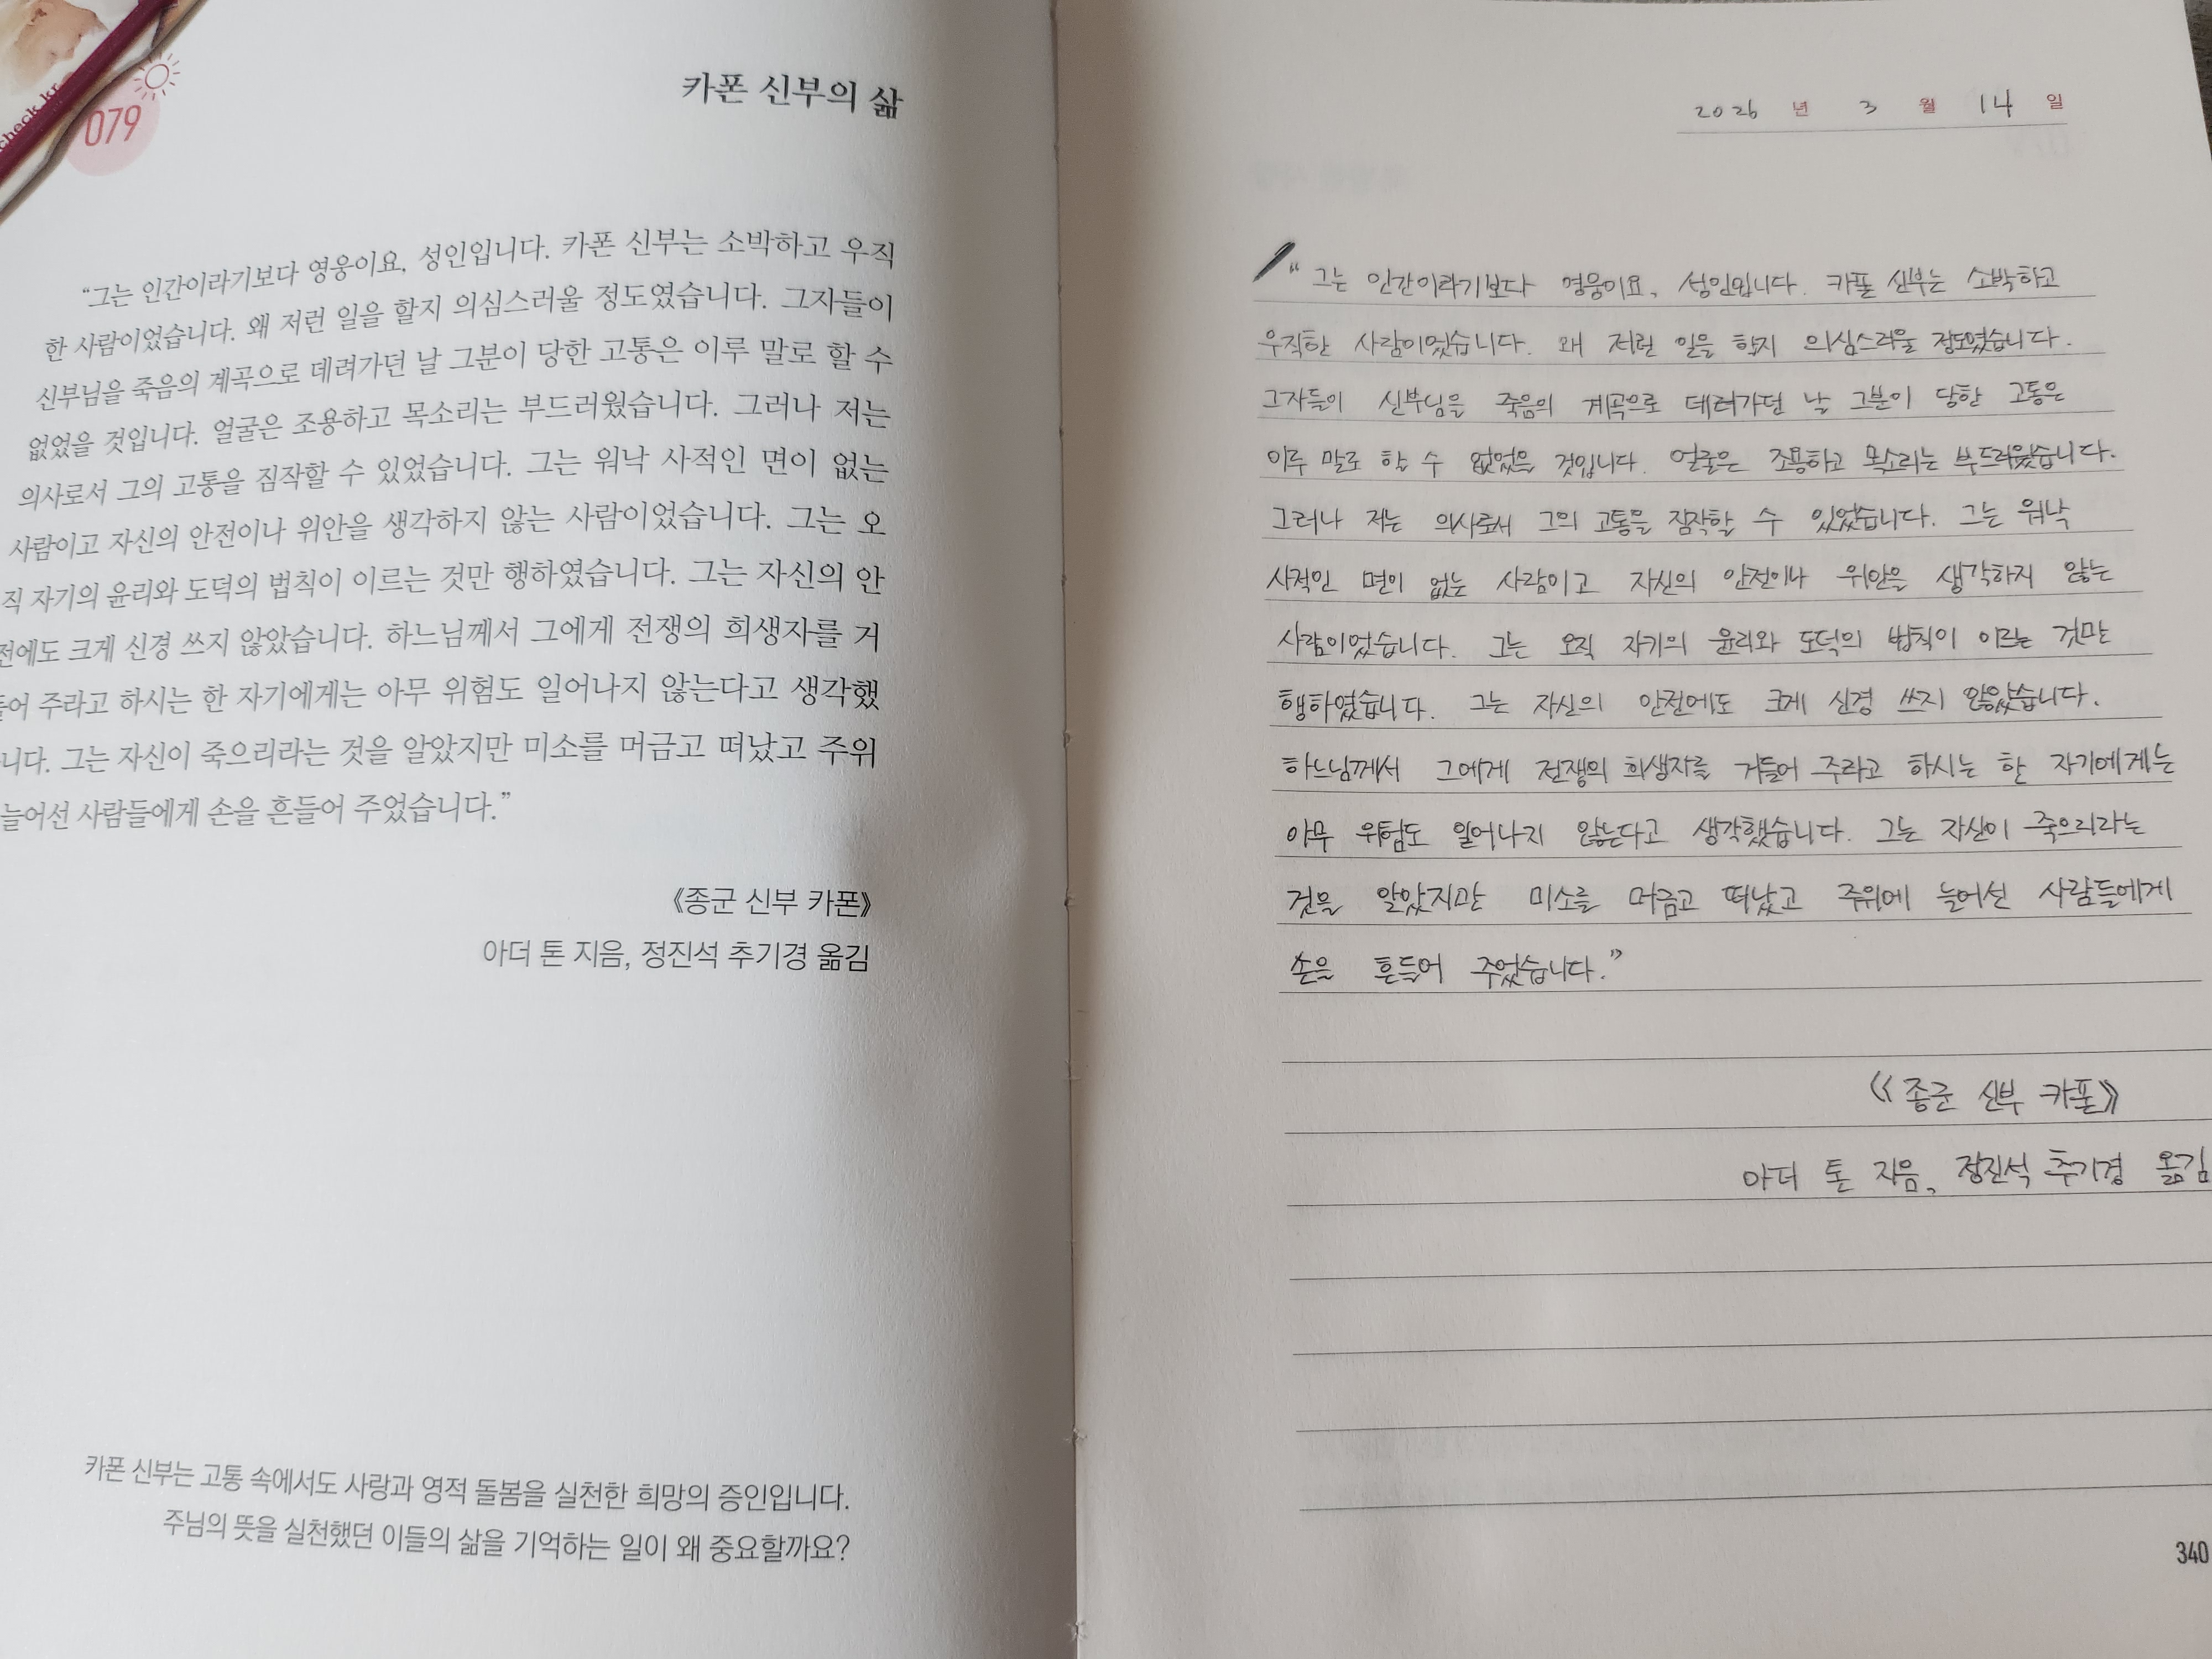 check.kr
079
카폰 신부의 삶
“그는 인간이라기보다 영웅이요, 성인입니다. 카폰 신부는 소박하고 우직
한 사람이었습니다. 왜 저런 일을 할지 의심스러울 정도였습니다. 그자들이
신부님을 죽음의 계곡으로 데려가던 날 그분이 당한 고통은 이루 말로 할 수
없었을 것입니다. 얼굴은 조용하고 목소리는 부드러웠습니다. 그러나 저는
의사로서 그의 고통을 짐작할 수 있었습니다. 그는 워낙 사적인 면이 없는
사람이고 자신의 안전이나 위안을 생각하지 않는 사람이었습니다. 그는 오
직 자기의 윤리와 도덕의 법칙이 이르는 것만 행하였습니다. 그는 자신의 안
전에도 크게 신경 쓰지 않았습니다. 하느님께서 그에게 전쟁의 희생자를 거
들어 주라고 하시는 한 자기에게는 아무 위험도 일어나지 않는다고 생각했
니다. 그는 자신이 죽으리라는 것을 알았지만 미소를 머금고 떠났고 주위
늘어선 사람들에게 손을 흔들어 주었습니다.”
《종군 신부 카폰》
아더 톤 지음, 정진석 추기경 옮김
카폰 신부는 고통 속에서도 사랑과 영적 돌봄을 실천한 희망의 증인입니다.
주님의 뜻을 실천했던 이들의 삶을 기억하는 일이 왜 중요할까요?
2026 년 3 월 14 일
“그는 인간이라기보다 영웅이요, 성인입니다. 카폰 신부는 소박하고
우직한 사람이었습니다. 왜 저런 일을 할지 의심스러울 정도였습니다.
그자들이 신부님을 죽음의 계곡으로 데려가던 날 그분이 당한 고통은
이루 말로 할 수 없었을 것입니다. 얼굴은 조용하고 목소리는 부드러웠습니다.
그러나 저는 의사로서 그의 고통을 짐작할 수 있었습니다. 그는 워낙
사적인 면이 없는 사람이고 자신의 안전이나 위안을 생각하지 않는
사람이었습니다. 그는 오직 자기의 윤리와 도덕의 법칙이 이르는 것만
행하였습니다. 그는 자신의 안전에도 크게 신경 쓰지 않았습니다.
하느님께서 그에게 전쟁의 희생자를 거들어 주라고 하시는 한 자기에게는
아무 위험도 일어나지 않는다고 생각했습니다. 그는 자신이 죽으리라는
것을 알았지만 미소를 머금고 떠났고 주위에 늘어선 사람들에게
손을 흔들어 주었습니다.”
《종군 신부 카폰》
아더 톤 지음, 정진석 추기경 옮김
340